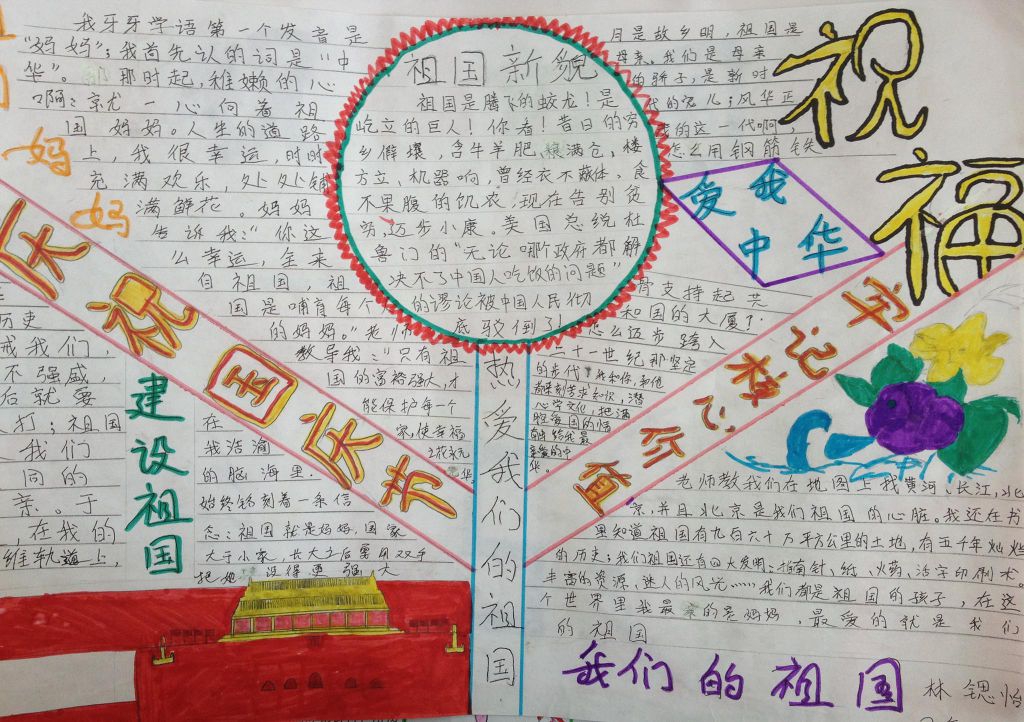 我牙牙学语第一个发音是
“妈妈”；我首先认的词是“中
华”。那时起，稚嫩的心
啊：京尤一心向着祖
国妈妈。人生的道路
上，我很幸运，时时
充满欢乐，处处铺
满鲜花。妈妈
告诉我：“你这
么幸运，全来
自祖国，祖
国是哺育每个
的妈妈。”老师
教导我：“只有祖
国的富裕强大，才
能保护每一个
家，使幸福
妈
妈
祖国新貌
祖国是腾飞的蛟龙！是
屹立的巨人！你看！昔日的穷
乡僻壤，含牛羊肥，粮满仓，楼
方立、机器响，曾经衣不蔽体，食
不果腹的饥农，现在告别贫
穷，迈步小康。美国总统杜
鲁门的“无论哪个政府都解
决不了中国人吃饭的问题”
的谬论被中国人民彻
底驳倒了！
月是故乡明，祖国是
母亲。我们是母亲
的骄子，是新时
代的宠儿；风华正
的这一代啊，
怎么用钢筋铁
骨支持起共
和国的大厦？
怎么迈步跨入
二十一世纪那坚定
祝
福
爱我
中华
庆祝国庆节
牢记核心价值
热爱我们的祖国
建设祖国
历史
戒我们，
不强盛，
后就要
打；祖国
我们
同的
亲。于
，在我的
维轨道上，
在
我浩瀚
的脑海里．
始终铭刻着一条信
念：祖国就是妈妈，国家
大于小家，长大之后要用双手
把她 设得更强大
老师教我们在地图上找黄河、长江，北
京，并且北京是我们祖国的心脏。我还在书
里知道祖国有九百六十万平方公里的土地，有五千年灿烂
的历史；我们祖国还有四大发明：指南针、纸、火药、活字印刷术。
丰富的资源、迷人的风光……我们都是祖国的孩子，在这
个世界里我最亲的是妈妈，最爱的就是我们
的祖国
我们的祖国
林锶怡